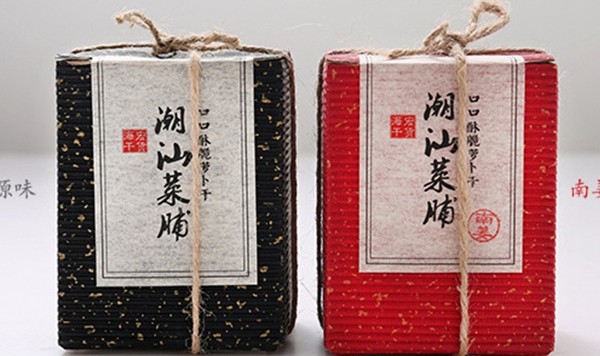 原味
口口酥脆萝卜干
潮汕菜脯
海宏
干货
口口酥脆萝卜干
潮汕菜脯
海宏
干货
南姜
南